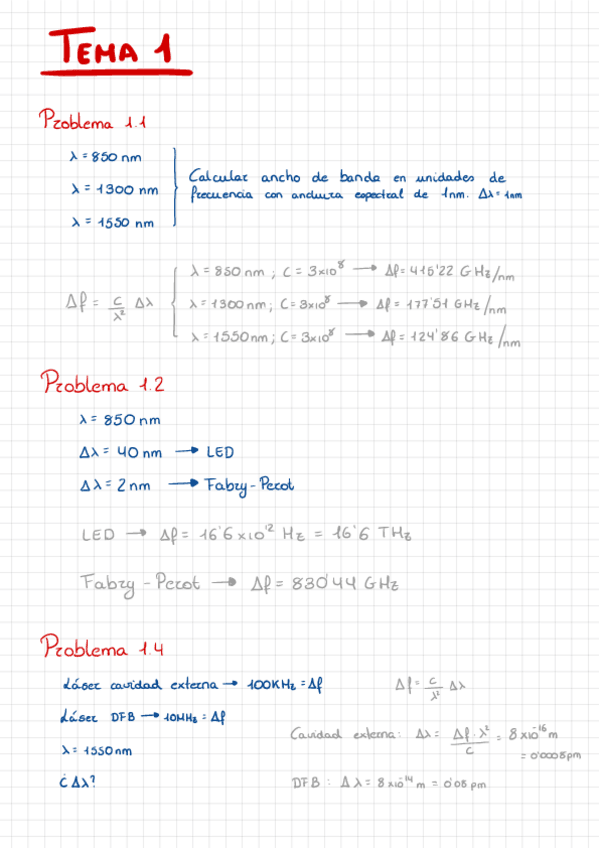 TEMA 1
Problema 1.1
λ = 850 nm
λ = 1300 nm
λ = 1550 nm
Calcular ancho de banda en unidades de
frecuencia con anchura espectral de 1nm. Δλ = 1nm
Δf = c/λ² Δλ
λ = 850 nm ; C = 3x10⁸ → Δf = 415'22 GHz/nm
λ = 1300 nm ; C = 3x10⁸ → Δf = 177'51 GHz/nm
λ = 1550 nm ; C = 3x10⁸ → Δf = 124'86 GHz/nm
Problema 1.2
λ = 850 nm
Δλ = 40 nm → LED
Δλ = 2 nm → Fabry-Perot
LED → Δf = 16'6 x10¹² Hz = 16'6 THz
Fabry - Perot → Δf = 830'44 GHz
Problema 1.4
Láser cavidad externa → 100KHz = Δf
Δf = c/λ² Δλ
Láser DFB → 10MHz = Δf
Cavidad externa: Δλ = Δf · λ²/c = 8 x10⁻¹⁶ m
= 0'0008 pm
λ = 1550 nm
¿Δλ?
DFB : Δλ = 8 x10⁻¹⁴ m = 0'08 pm